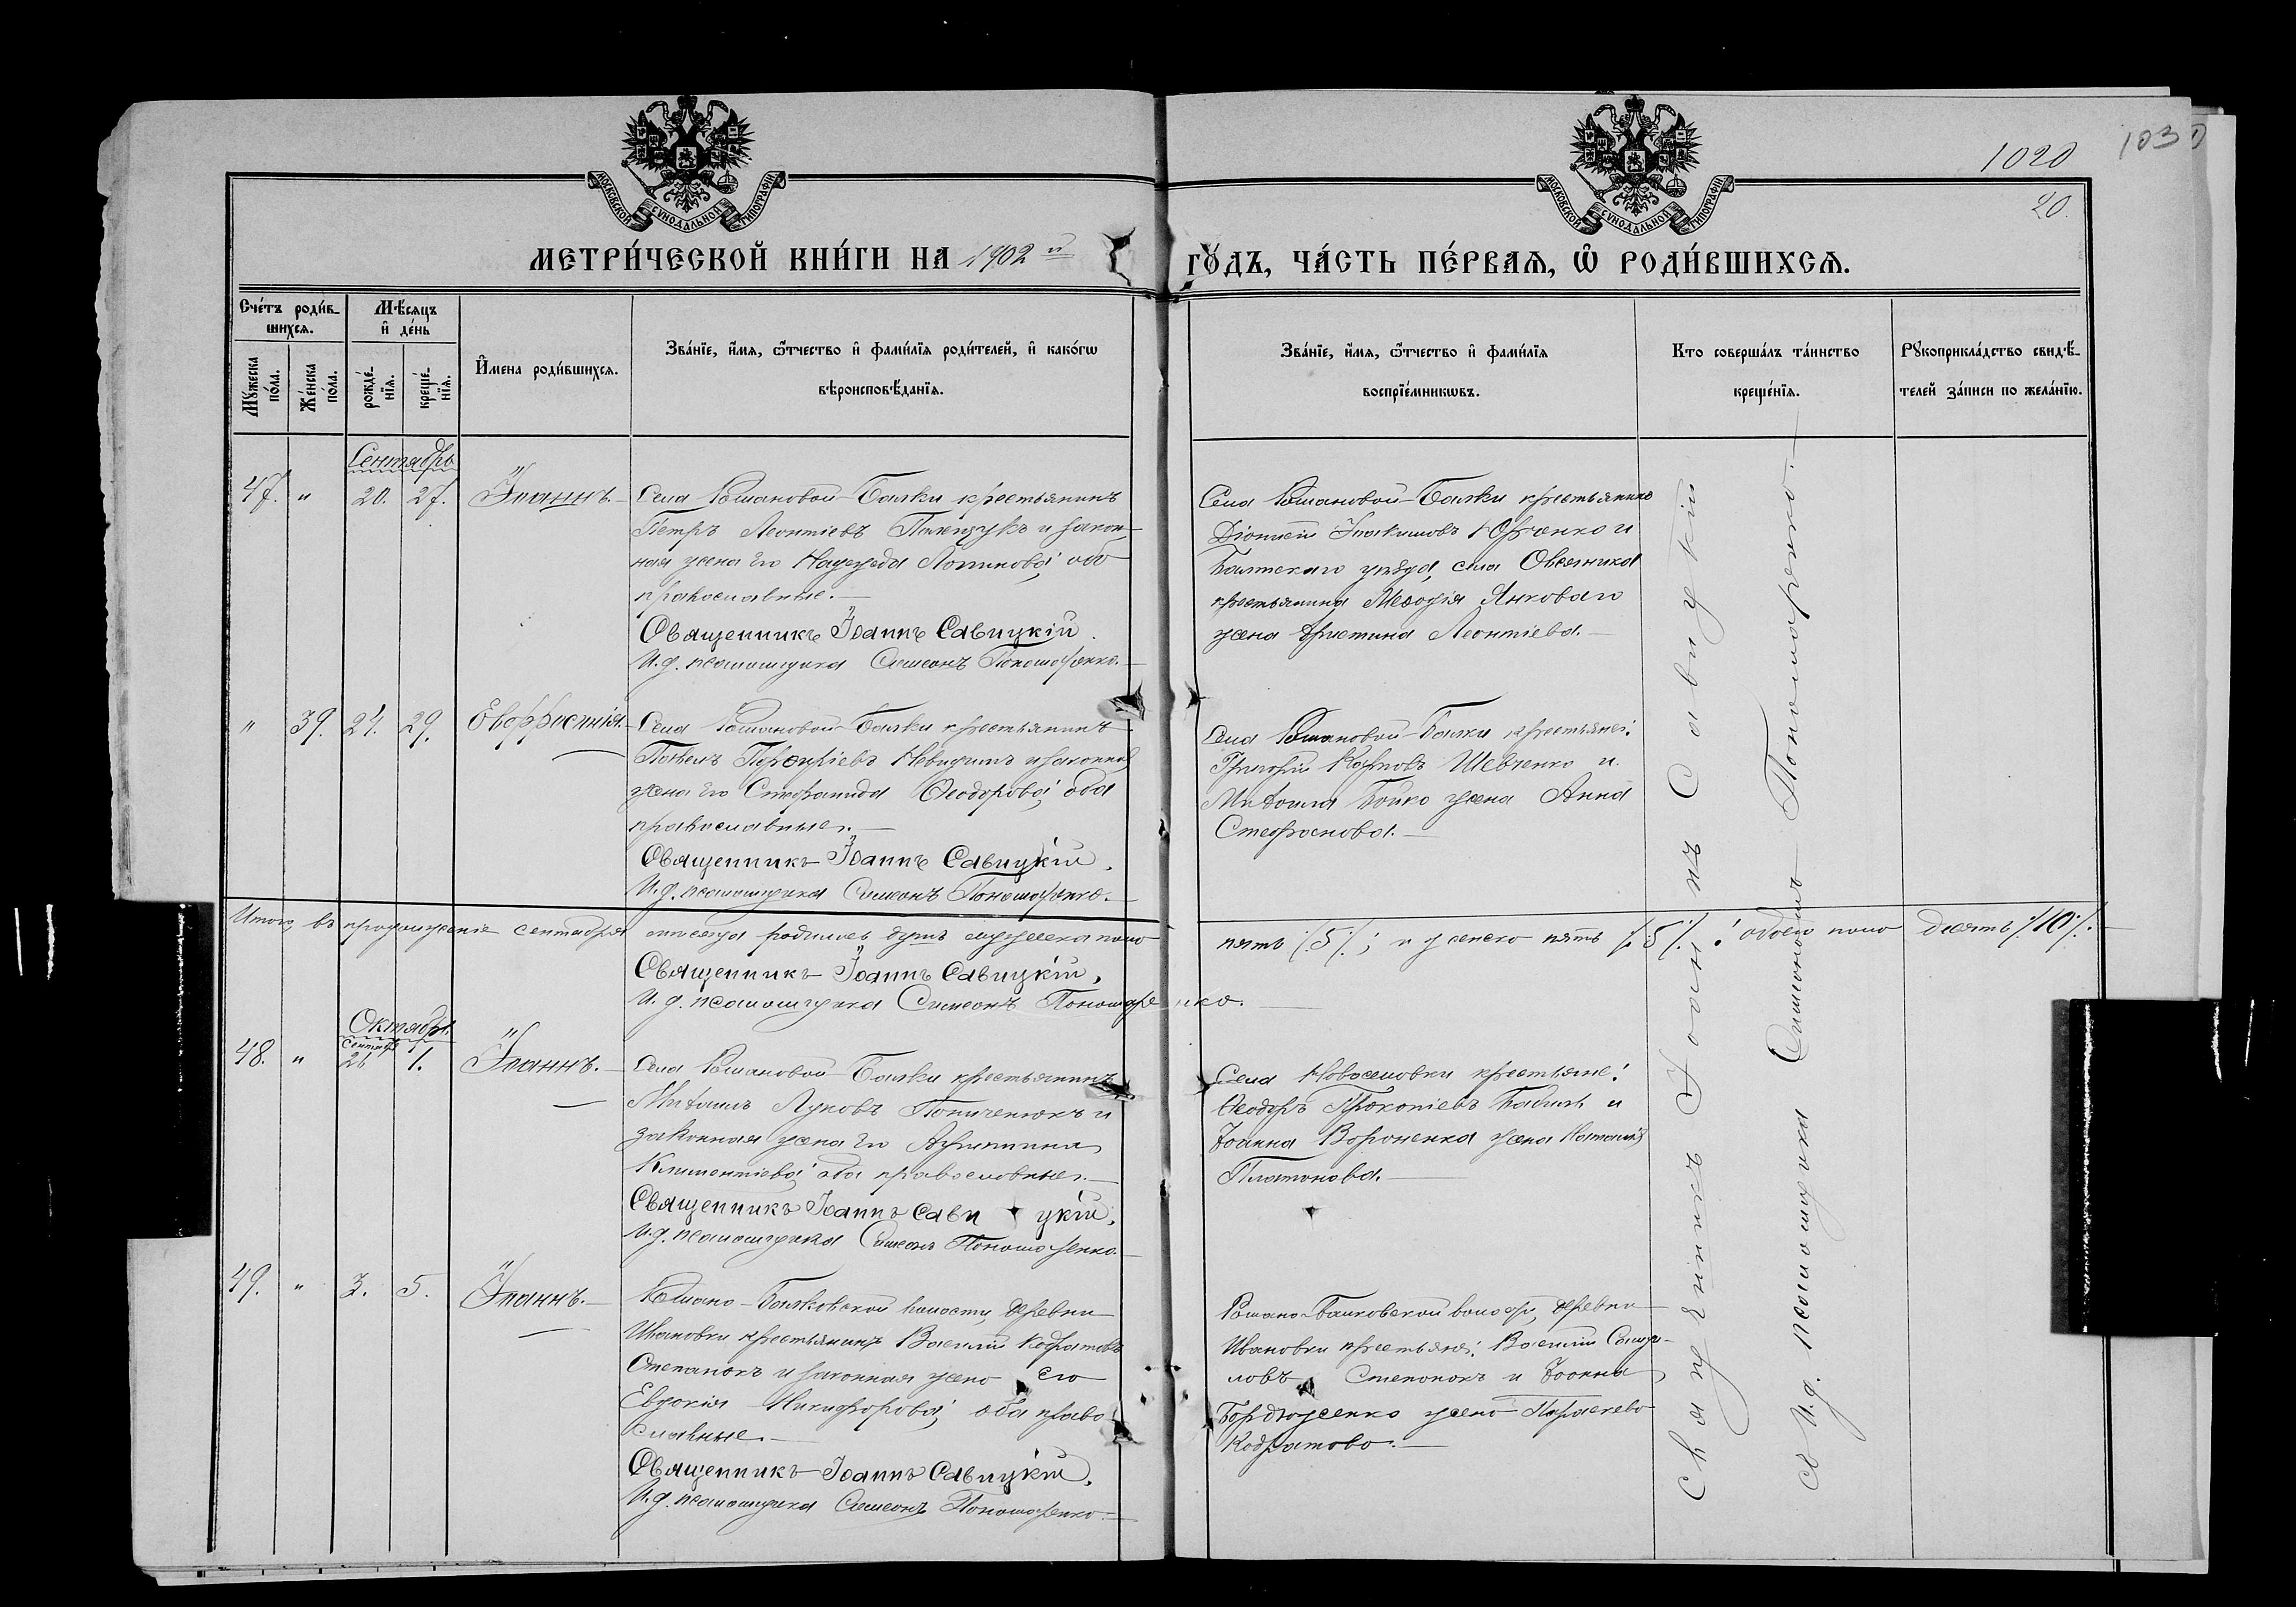 1030
1020
20.
МОСКОВСКОЙ СѴНОДАЛЬНОЙ ТИПОГРАФІИ
МОСКОВСКОЙ СѴНОДАЛЬНОЙ ТИПОГРАФІИ
МЕТРИ́ЧЕСКОЙ КНИ́ГИ НА 1902 й
ГО́ДЪ, ЧА́СТЬ ПЕ́РВАѦ, Ѡ҆ РОДИ́ВШИХСѦ.
Сче́тъ роди́в-
шихсѧ.
Мѣ́сѧцъ
и҆ де́нь
Мꙋ́жеска
по́ла.
Же́нска
по́ла.
рожде́-
нїѧ.
креще́-
нїѧ.
И҆мена роди́вшихсѧ.
Зва́нїе, и҆́мѧ, ѻ҆́тчество и҆ фами́лїѧ роди́телей, и҆ како́гѡ
вѣроисповѣ́данїѧ.
Зва́нїе, и҆́мѧ, ѻ҆́тчество и҆ фами́лїѧ
воспрїе́мникѡвъ.
Кто соверша́лъ та́инство
креще́нїѧ.
Рꙋкоприкла́дство свидѣ́-
телей за́писи по жела́нїю.
Сентябрь
47. " 20. 27. Іоаннъ.
Села Романовой-Балки крестьянинъ
Петръ Леонтіевъ Полищукъ и закон-
ная жена его Надежда Логинова; оба
православные.
Священникъ Іоаннъ Савицкій.
И.д. псаломщика Симеонъ Пономаренко.
Села Романовой-Балки крестьянинъ
Діонисій Іоакимовъ Юрченко и
Балтскаго уѣзда, села Овсяника
крестьянина Меѳодія Янковаго
жена Христина Леонтіева.
" 39. 24. 29. Евфросинія.
Села Романовой-Балки крестьянинъ
Павелъ Порфиріевъ Невидимъ и законная
жена его Стефанида Ѳеодорова; оба
православные.
Священникъ Іоаннъ Савицкій.
И.д. псаломщика Симеонъ Пономаренко.
Села Романовой-Балки крестьяне:
Григорій Карповъ Шевченко и
Михаила Бойко жена Анна
Стефанова.
Итого, въ продолженіе сентября мѣсяца родилось душъ мужеска пола пять /5/; и женска пять /5/. обоего пола десять /10/.
Священникъ Іоаннъ Савицкій.
И.д. псаломщика Симеонъ Пономаренко.
Октябрь.
сентябр.
48. " 26 1. Іоаннъ.
Села Романовой-Балки крестьянинъ
Михаилъ Луковъ и
законная жена его Агриппина
Климентіева; оба православные.
Священникъ Іоаннъ Савицкій.
И.д. псаломщика Симеонъ Пономаренко.
Села Новоселовки крестьяне:
Ѳеодоръ Прокопіевъ и
Іоанна Вороненка жена Наталія
Платонова.
49. " 3. 5. Іоаннъ.
Романо-Балковской волости, деревни
Ивановки крестьянинъ Василій Кодратовъ
Степанокъ и законная жена его
Евдокія Никифорова; оба право-
славные.
Священникъ Іоаннъ Савицкій.
И.д. псаломщика Симеонъ Пономаренко.
Романо-Балковской волости, деревни
Ивановки крестьяне: Василій
Степанокъ и Іоанна
Бордюженко жена Параскева
Кодратова.
Священникъ Іоаннъ Савицкій
И.д. псаломщика Симеонъ Пономаренко.